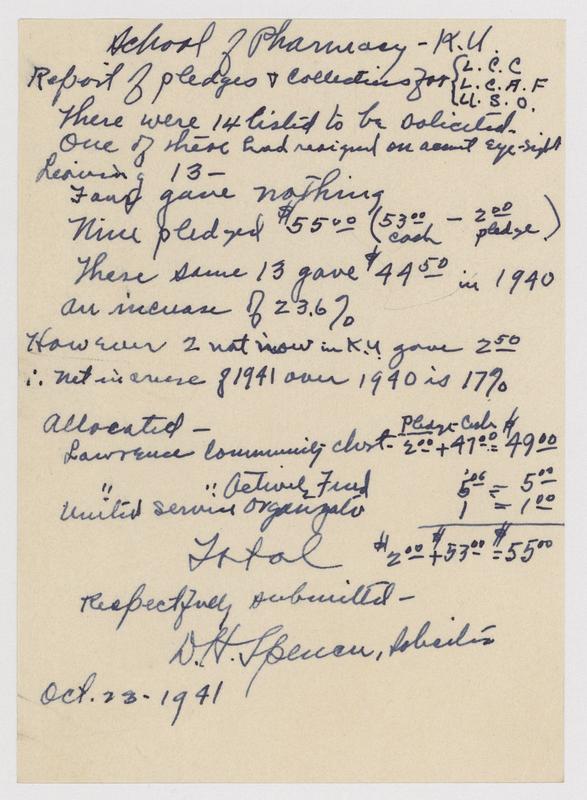 School of Pharmacy - K.U.
Report of pledges & collections for { L.C.C
L.C.A.F
U.S.O.
There were 14 listed to be solicited.
One of these had resigned on account eye-sight
Leaving 13 -
Four gave nothing
Nine pledged $55.00 (53.00 cash - 2.00 pledge)
These same 13 gave $44.50 in 1940
an increase of 23.6%
However 2 not now in K.U. gave 2.50
∴ Net increase of 1941 over 1940 is 17%
Allocated - Pledge Cash
Lawrence Community Chest - 2.00 + 47.00 = $49.00
" " Activity Fund 5.00 = 5.00
United Service Organizatn 1 = 1.00
Total $2.00 + $53.00 = $55.00
Respectfully submitted -
D.H. Spencer, Solicitor
Oct. 23 - 1941